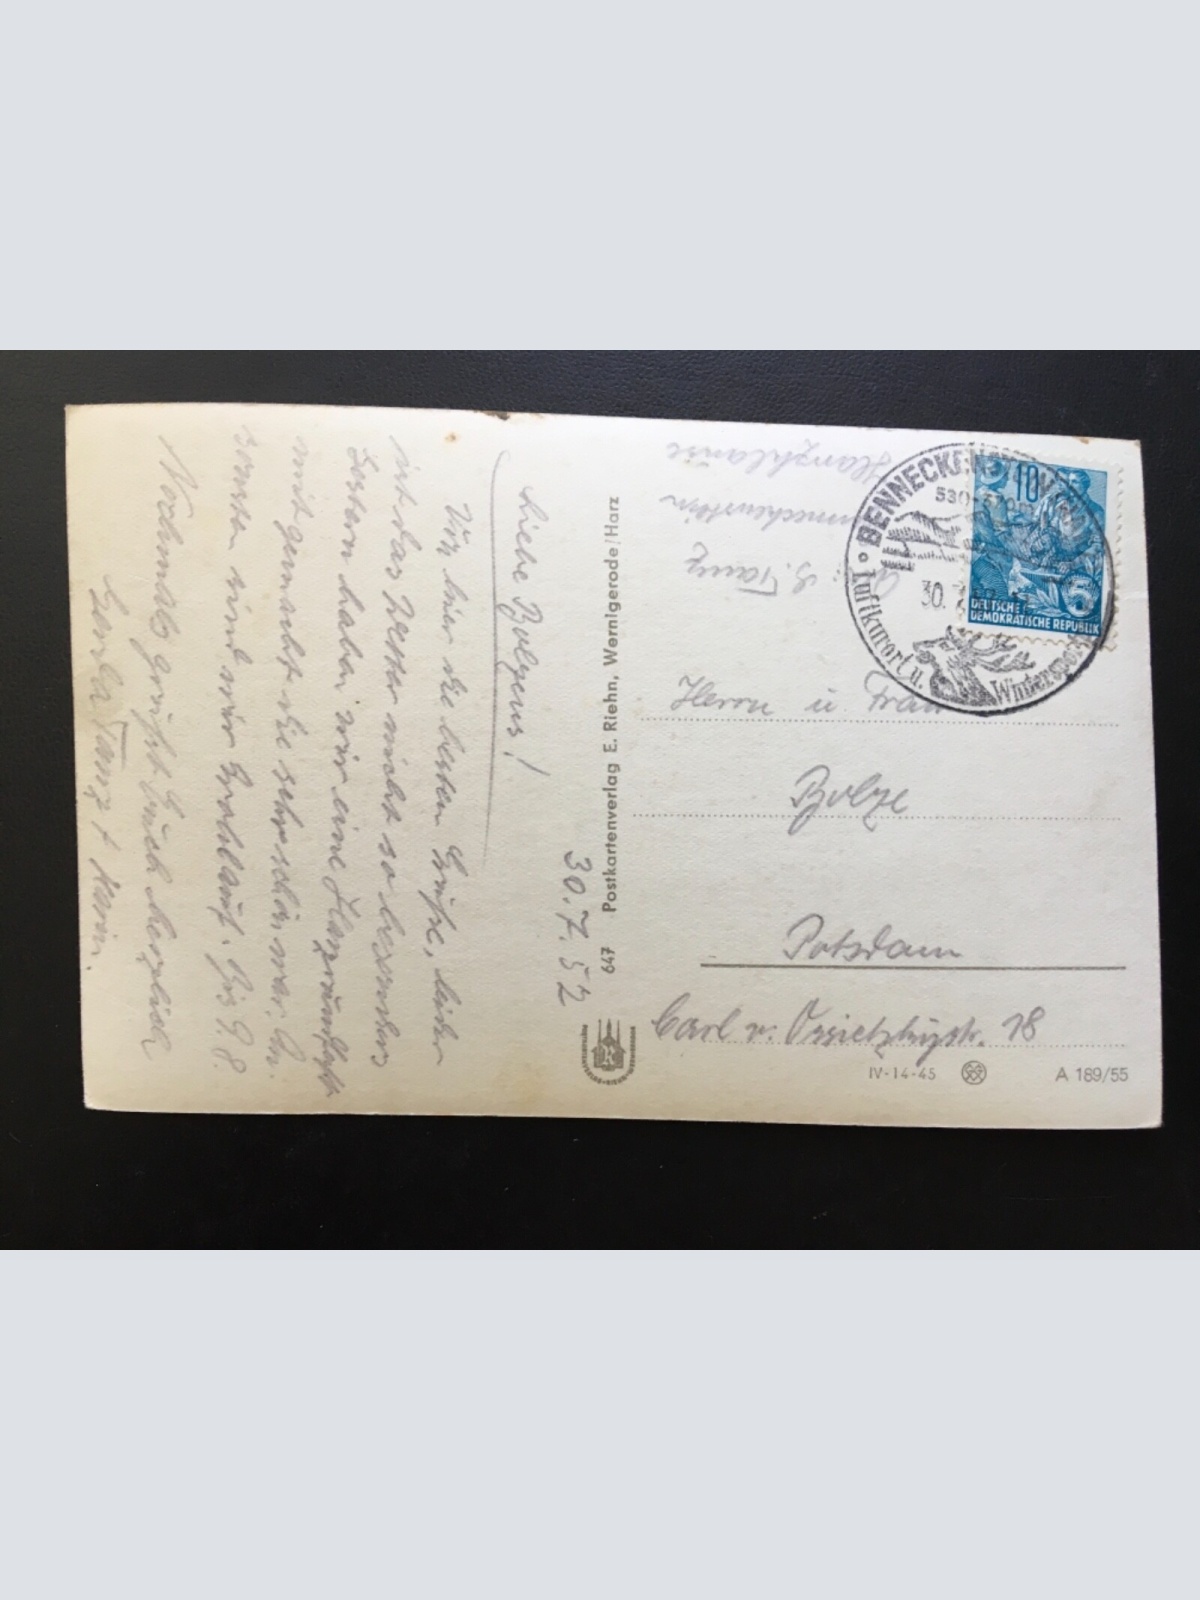 30.7.52
Liebe Bolzens!
Von hier die besten Grüße, leider
ist das Wetter nicht so besonders
Gestern haben wir eine Harzrundfahrt
mitgemacht die sehr schön war. An-
sonsten sind wir wohlauf. Bis 9.8.
Nochmals grüßt Euch herzlich
Gerda Tanz + Karin.
647 Postkartenverlag E. Riehn, Wernigerode/Harz
R
G. Tanz
Benneckenstein
Harzklause
BENNECKENSTEIN
530
30.
Luftkurort u. Wintersport
10
5
DEUTSCHE
DEMOKRATISCHE REPUBLIK
Herrn u Frau
Bolze
Potsdam
Carl v. Ossietzkystr. 18
IV-14-45
A 189/55